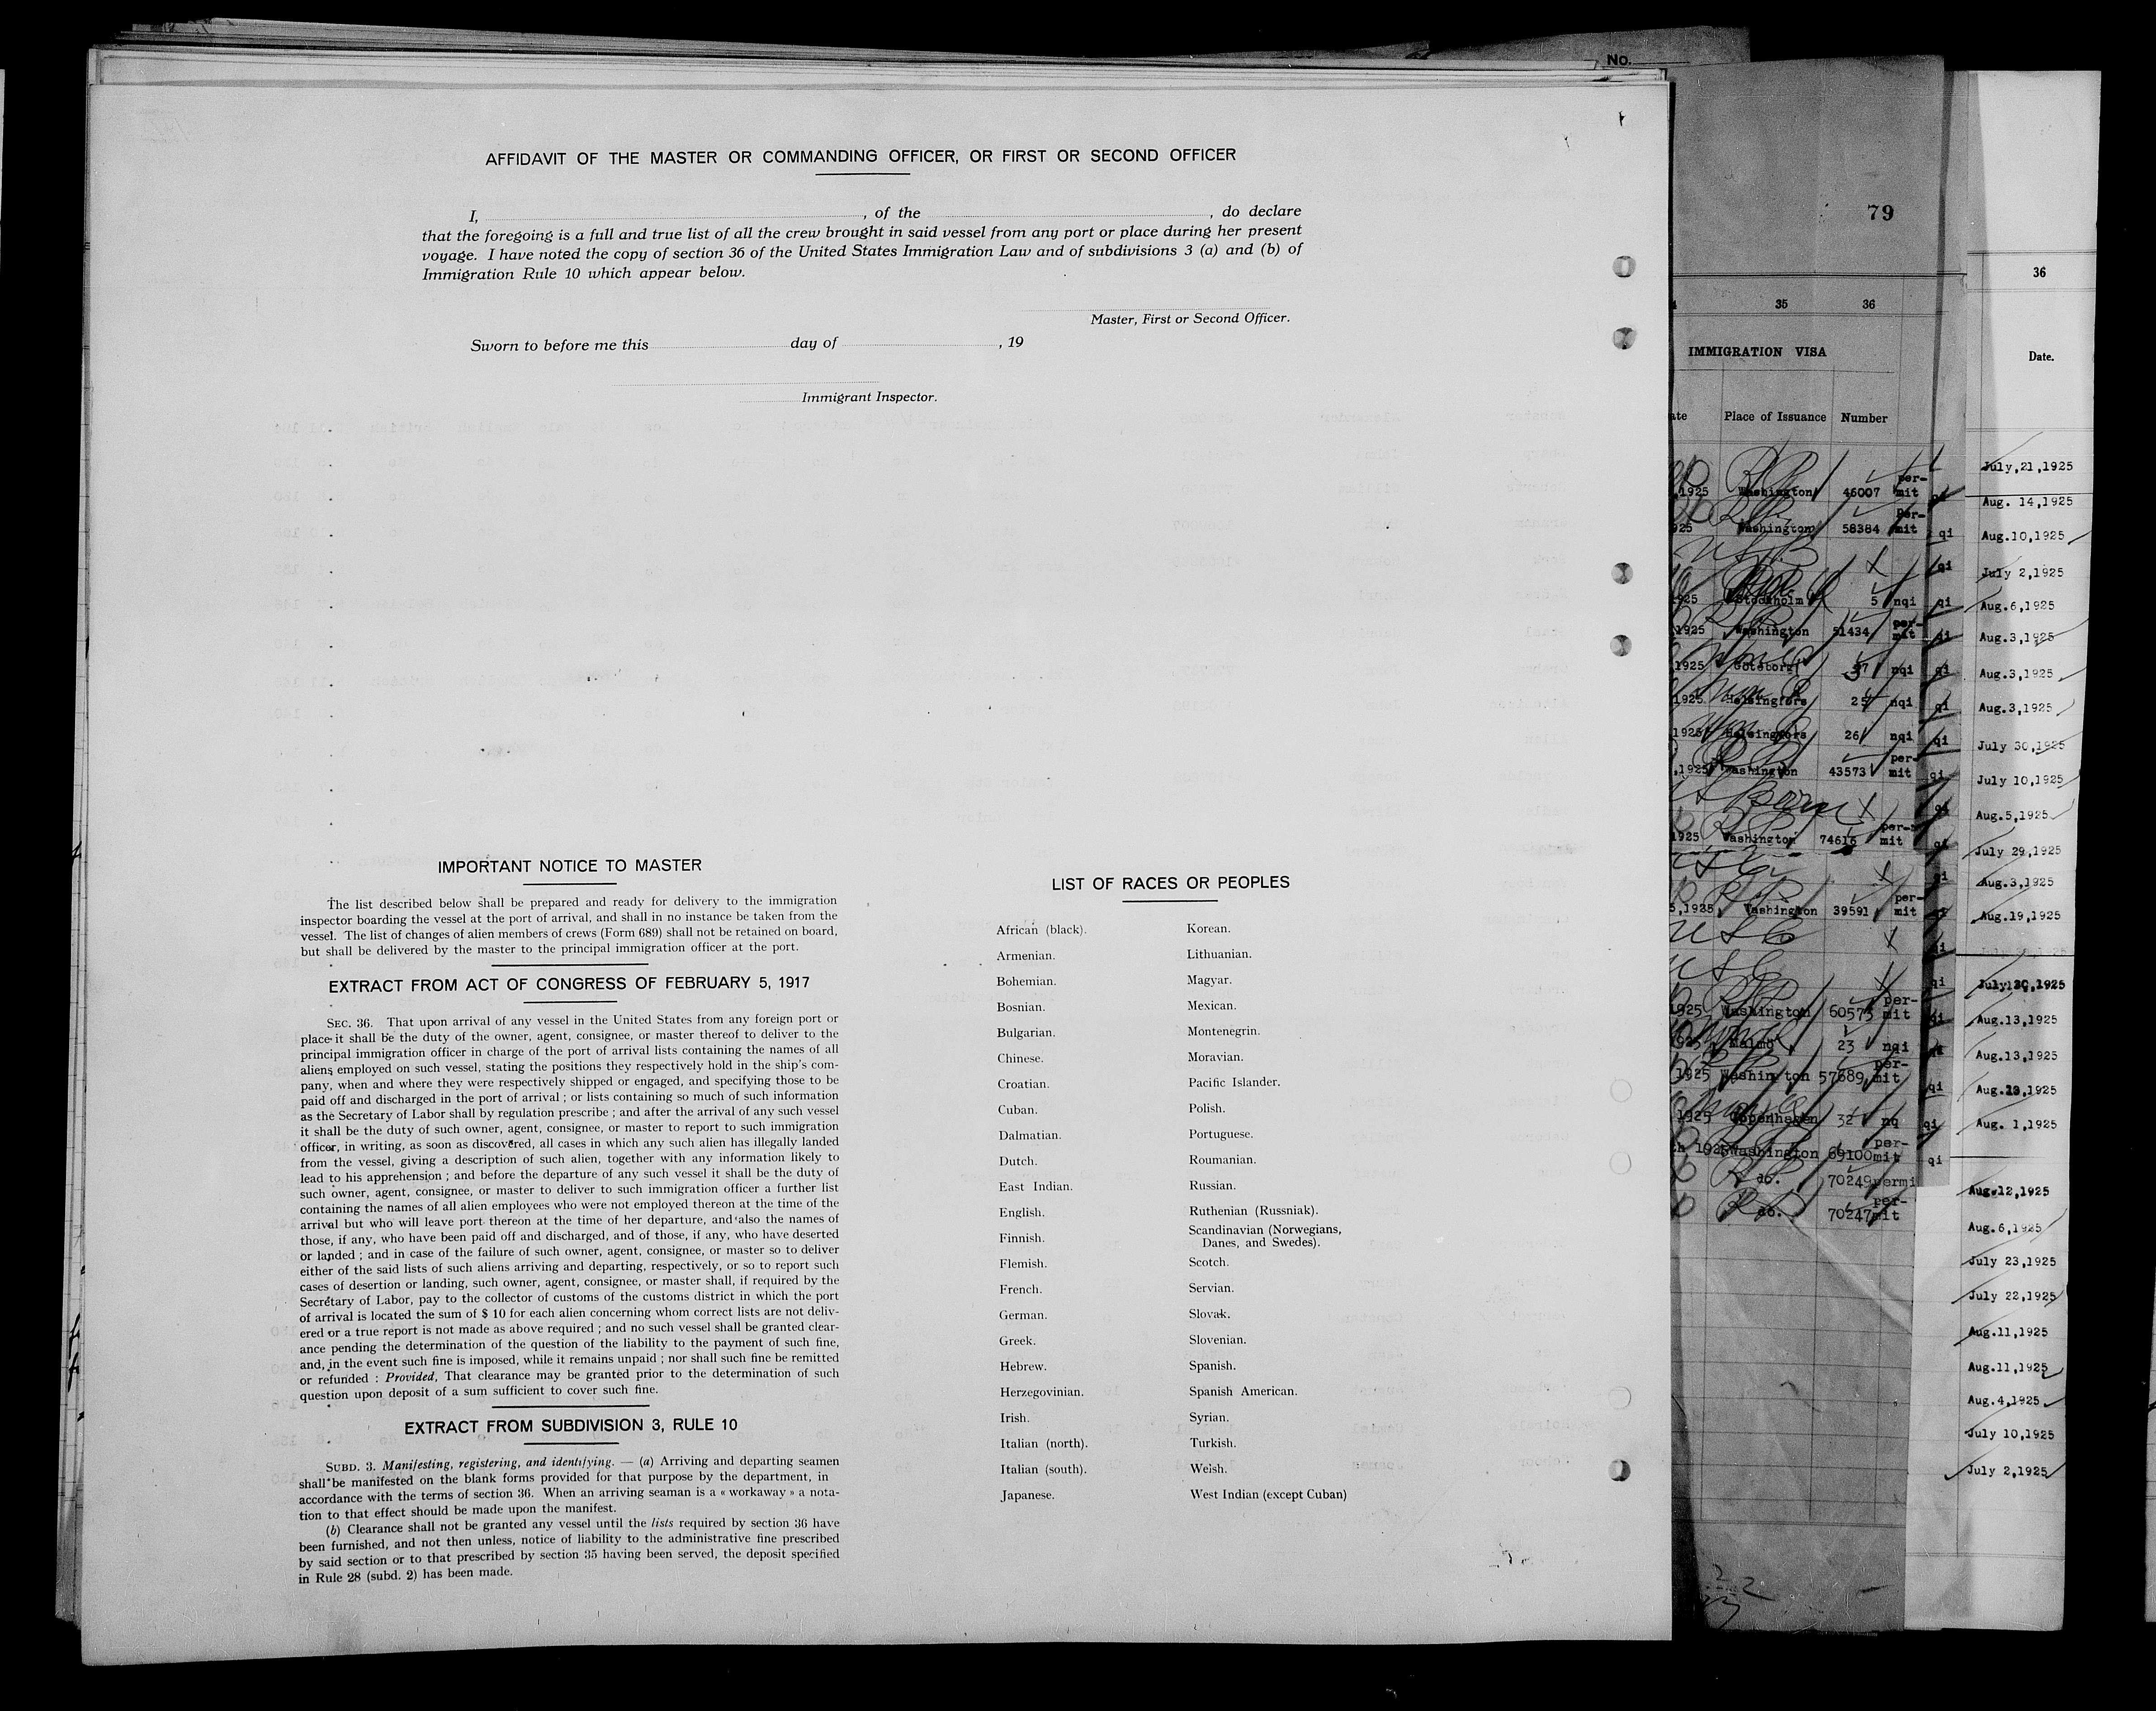 AFFIDAVIT OF THE MASTER OR COMMANDING OFFICER, OR FIRST OR SECOND OFFICER
I, , of the , do declare
that the foregoing is a full and true list of all the crew brought in said vessel from any port or place during her present
voyage. I have noted the copy of section 36 of the United States Immigration Law and of subdivisions 3 (a) and (b) of
Immigration Rule 10 which appear below.
Master, First or Second Officer.
Sworn to before me this day of , 19
Immigrant Inspector.
IMPORTANT NOTICE TO MASTER
The list described below shall be prepared and ready for delivery to the immigration
inspector boarding the vessel at the port of arrival, and shall in no instance be taken from the
vessel. The list of changes of alien members of crews (Form 689) shall not be retained on board,
but shall be delivered by the master to the principal immigration officer at the port.
EXTRACT FROM ACT OF CONGRESS OF FEBRUARY 5, 1917
SEC. 36. That upon arrival of any vessel in the United States from any foreign port or
place it shall be the duty of the owner, agent, consignee, or master thereof to deliver to the
principal immigration officer in charge of the port of arrival lists containing the names of all
aliens employed on such vessel, stating the positions they respectively hold in the ship's com-
pany, when and where they were respectively shipped or engaged, and specifying those to be
paid off and discharged in the port of arrival ; or lists containing so much of such information
as the Secretary of Labor shall by regulation prescribe ; and after the arrival of any such vessel
it shall be the duty of such owner, agent, consignee, or master to report to such immigration
officer, in writing, as soon as discovered, all cases in which any such alien has illegally landed
from the vessel, giving a description of such alien, together with any information likely to
lead to his apprehension ; and before the departure of any such vessel it shall be the duty of
such owner, agent, consignee, or master to deliver to such immigration officer a further list
containing the names of all alien employees who were not employed thereon at the time of the
arrival but who will leave port thereon at the time of her departure, and also the names of
those, if any, who have been paid off and discharged, and of those, if any, who have deserted
or landed ; and in case of the failure of such owner, agent, consignee, or master so to deliver
either of the said lists of such aliens arriving and departing, respectively, or so to report such
cases of desertion or landing, such owner, agent, consignee, or master shall, if required by the
Secretary of Labor, pay to the collector of customs of the customs district in which the port
of arrival is located the sum of $ 10 for each alien concerning whom correct lists are not deliv-
ered or a true report is not made as above required ; and no such vessel shall be granted clear-
ance pending the determination of the question of the liability to the payment of such fine,
and, in the event such fine is imposed, while it remains unpaid ; nor shall such fine be remitted
or refunded : Provided, That clearance may be granted prior to the determination of such
question upon deposit of a sum sufficient to cover such fine.
EXTRACT FROM SUBDIVISION 3, RULE 10
SUBD. 3. Manifesting, registering, and identifying. — (a) Arriving and departing seamen
shall be manifested on the blank forms provided for that purpose by the department, in
accordance with the terms of section 36. When an arriving seaman is a « workaway » a nota-
tion to that effect should be made upon the manifest.
(b) Clearance shall not be granted any vessel until the lists required by section 36 have
been furnished, and not then unless, notice of liability to the administrative fine prescribed
by said section or to that prescribed by section 35 having been served, the deposit specified
in Rule 28 (subd. 2) has been made.
LIST OF RACES OR PEOPLES
African (black).
Armenian.
Bohemian.
Bosnian.
Bulgarian.
Chinese.
Croatian.
Cuban.
Dalmatian.
Dutch.
East Indian.
English.
Finnish.
Flemish.
French.
German.
Greek.
Hebrew.
Herzegovinian.
Irish.
Italian (north).
Italian (south).
Japanese.
Korean.
Lithuanian.
Magyar.
Mexican.
Montenegrin.
Moravian.
Pacific Islander.
Polish.
Portuguese.
Roumanian.
Russian.
Ruthenian (Russniak).
Scandinavian (Norwegians,
Danes, and Swedes).
Scotch.
Servian.
Slovak.
Slovenian.
Spanish.
Spanish American.
Syrian.
Turkish.
Welsh.
West Indian (except Cuban)
No.
79
35 36
IMMIGRATION VISA
Place of Issuance Number
1925 Washington 46007 per-
mit qi
Washington 58384 per-
mit qi
qi
Stockholm 5 nqi qi
1925 Washington 51434 per-
mit qi
1925 Goteborg 37 nqi qi
1925 Helsingfors 25 nqi qi
1925 Helsingfors 26 nqi qi
1925 Washington 43573 per-
mit qi
Born
1925 Washington 74616 per-
mit qi
qi
1925 Washington 39591 per-
mit qi
qi
qi
1925 Washington 60573 per-
mit qi
1925 Malmö 23 nqi
1925 Washington 57689 per-
mit qi
1925 Copenhagen 32 nq qi
1925 Washington 69100 per-
mit qi
do. 70249 permi
do. 70247 per-
mit
36
Date.
July,21,1925
Aug. 14,1925
Aug.10,1925
July 2,1925
Aug.6,1925
Aug.3,1925
Aug.3,1925
Aug.3,1925
July 30,1925
July 10,1925
Aug.5,1925
July 29,1925
Aug.3,1925
Aug.19,1925
July 30,1925
Aug.13,1925
Aug.13,1925
Aug. 1,1925
Aug.12,1925
Aug.6,1925
July 23,1925
July 22,1925
Aug.11,1925
Aug.11,1925
Aug.4,1925
July 10,1925
July 2,1925